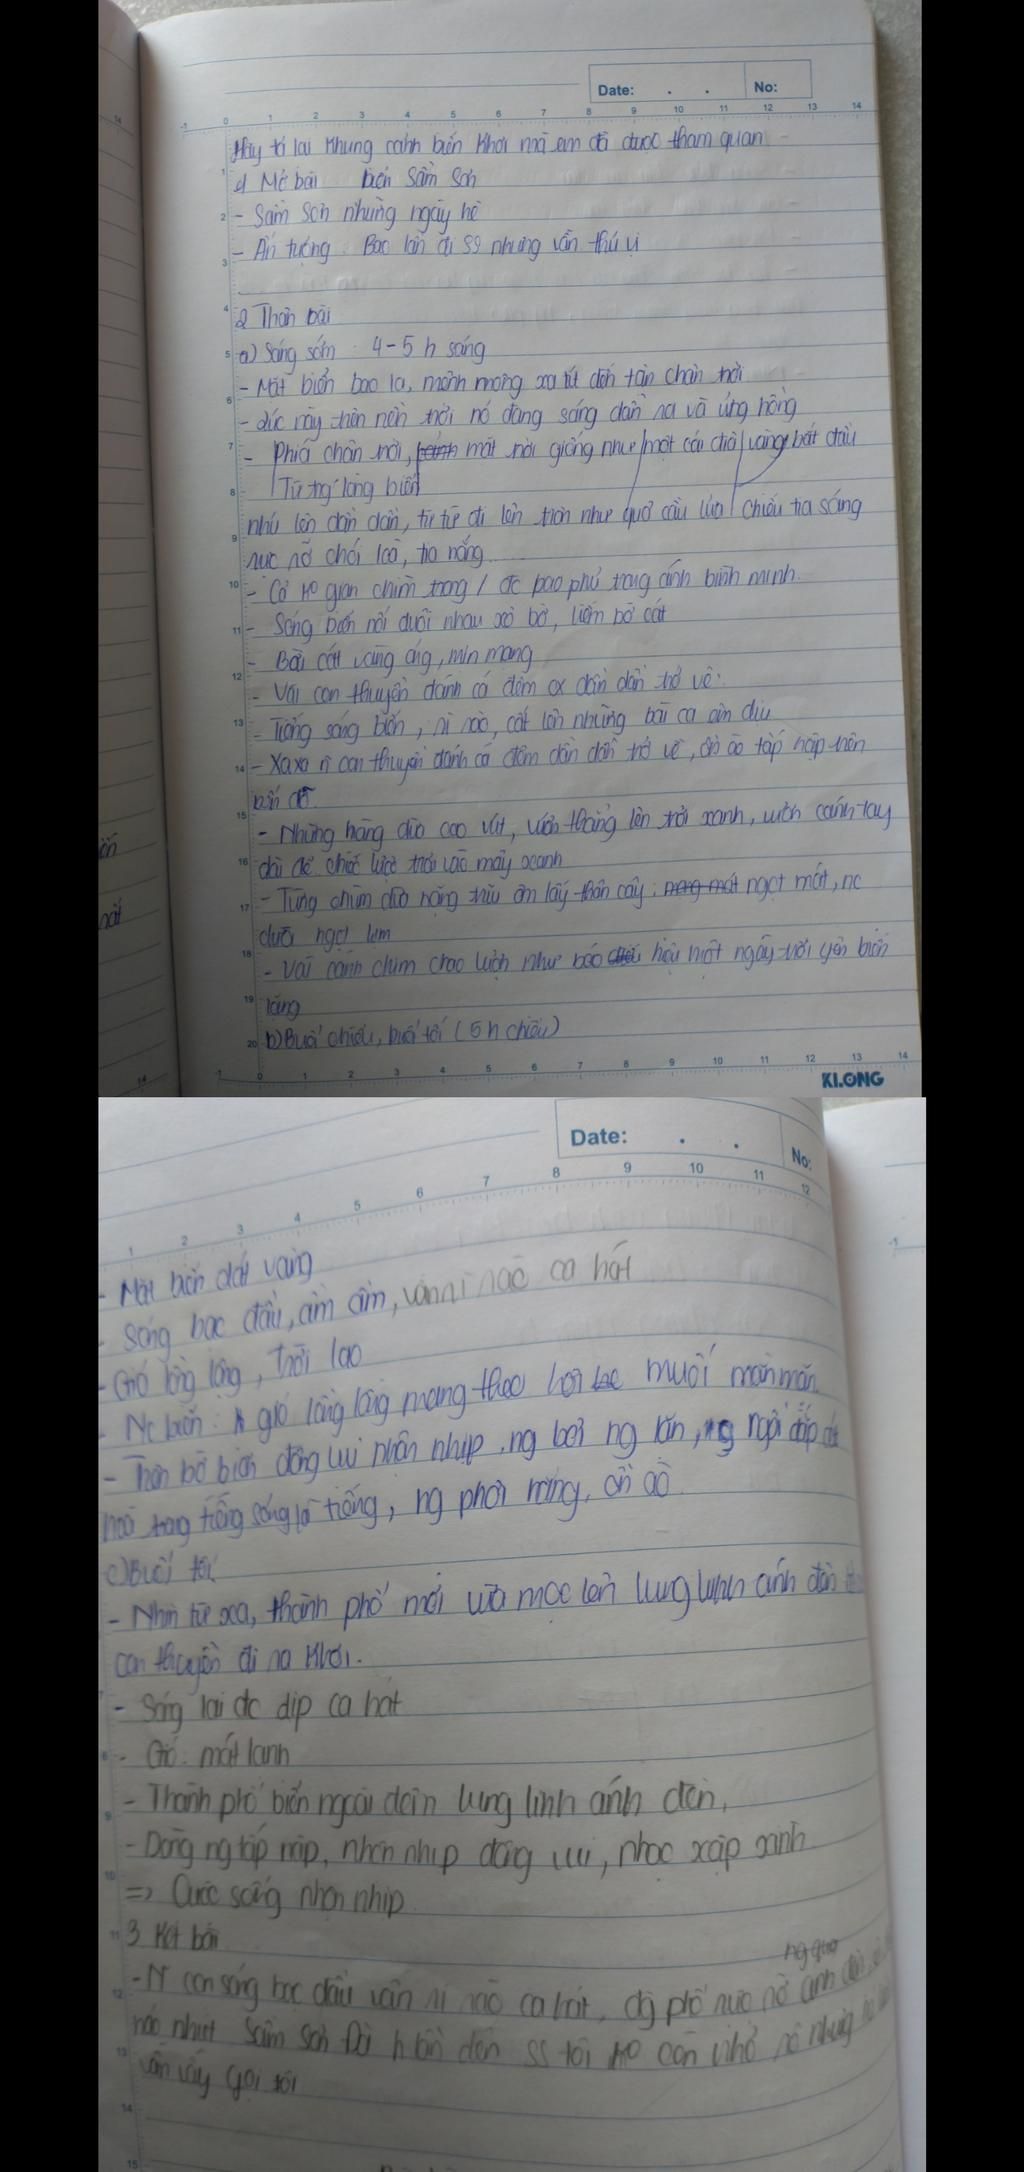 Date: . . No:
Hãy tả lại khung cảnh biển khơi mà em đã được tham quan
1 Mở bài biển Sầm Sơn
- Sầm Sơn những ngày hè
- Ấn tượng: Bao lần đi SS nhưng vẫn thú vị
2 Thân bài
a) Sáng sớm: 4-5 h sáng
- Mặt biển bao la, mênh mông xa tít đến tận chân trời
- Lúc này trên nền trời nó đang sáng dần ra và ửng hồng
- Phía chân trời, mặt trời giống như một cái đĩa vàng bắt đầu
Từ từ lòng biển
nhú lên dần dần, từ từ đi lên tròn như quả cầu lửa chiếu tia sáng
rực rỡ chói loà, tia nắng
- Cả ko gian chìm trong / đc bao phủ trong ánh bình minh.
- Sóng biển nối đuôi nhau xô bờ, liếm bờ cát
- Bãi cát vàng óng, mịn màng
- Vài con thuyền đánh cá đêm dần dần trở về.
- Tiếng sóng biển, rì rào, cất lên những bài ca êm dịu
- Xa xa n con thuyền đánh cá đêm dần dần trở về, ồn ào tấp nập trên
bến đỗ.
- Những hàng dừa cao vút, vươn thẳng lên trời xanh, vươn cánh tay
dài để chiếc lược trời vào mây xanh
- Từng chùm dừa nặng trĩu ôm lấy thân cây: mang mát ngọt mát, nc
dừa ngọt lịm
- Vài cánh chim chao lượn như báo hiệu một ngày trời yên biển
lặng
b) Buổi chiều, buổi tối (5 h chiều)
KLONG
Date: . . No:
- Mặt biển dát vàng
- Sóng bạc đầu, ầm ầm, vẫn rì rào ca hát
- Gió lồng lộng, thổi lao
- Nc biển: gió lồng lộng mang theo hơi muối mằn mặn
- Trên bờ biển đông vui nhộn nhịp, ng bơi ng lặn, ng ngồi đắp
hoà trong tiếng sóng là tiếng, ng phơi nắng, ồn ào
c) Buổi tối
- Nhìn từ xa, thành phố mới vừa mọc lên lung linh ánh đèn
con thuyền đi ra khơi.
- Sóng lại đc dịp ca hát
- Gió: mát lạnh
- Thành phố biển ngoài đêm lung linh ánh đèn,
- Dòng ng tấp nập, nhộn nhịp đông vui, nhạc xập xình
=> Cuộc sống nhộn nhịp
3 Kết bài
- N con sóng bạc đầu vẫn rì rào ca hát, phố rực rỡ ánh đèn
náo nhiệt Sầm Sơn Đã h lần đến SS tôi ko còn nhớ rõ nhưng
vẫn vẫy gọi tôi